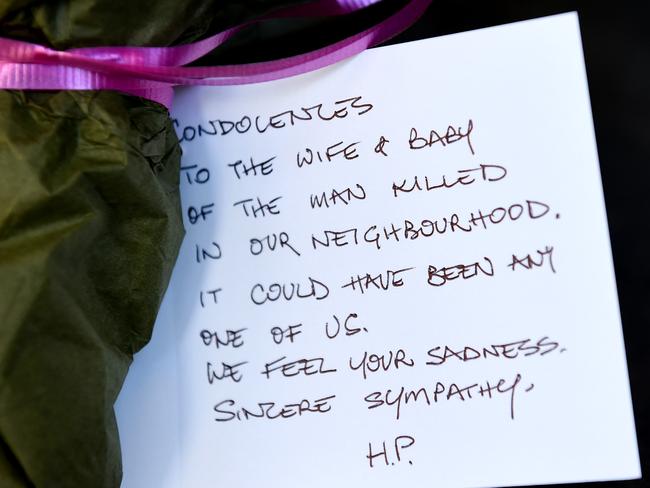 CONDOLENCES
TO THE WIFE & BABY
OF THE MAN KILLED
IN OUR NEIGHBOURHOOD.
IT COULD HAVE BEEN ANY
ONE OF US.
WE FEEL YOUR SADNESS.
SINCERE SYMPATHY,
H.P.